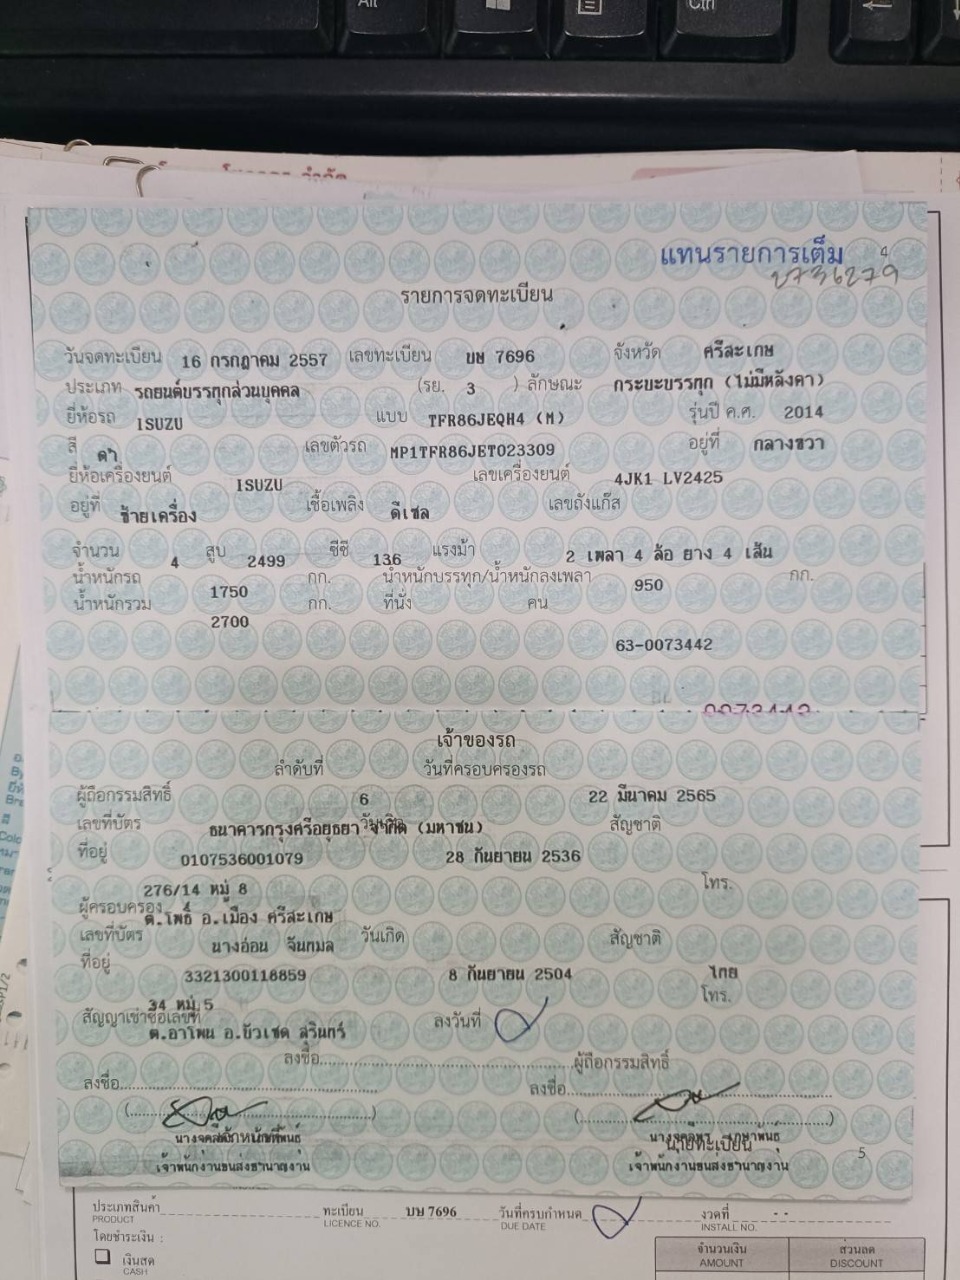 Alt
Ctrl
แทนรายการเต็ม
4
ข736279
รายการจดทะเบียน
วันจดทะเบียน 16 กรกฎาคม 2557 เลขทะเบียน บษ 7696 จังหวัด ศรีสะเกษ
ประเภท รถยนต์บรรทุกส่วนบุคคล (รย. 3 ) ลักษณะ กระบะบรรทุก (ไม่มีหลังคา)
ยี่ห้อรถ ISUZU แบบ TFR86JEQH4 (M) รุ่นปี ค.ศ. 2014
สี ดำ เลขตัวรถ MP1TFR86JET023309 อยู่ที่ กลางขวา
ยี่ห้อเครื่องยนต์ ISUZU เลขเครื่องยนต์ 4JK1 LV2425
อยู่ที่ ซ้ายเครื่อง เชื้อเพลิง ดีเซล เลขถังแก๊ส
จำนวน 4 สูบ 2499 ซีซี 136 แรงม้า 2 เพลา 4 ล้อ ยาง 4 เส้น
น้ำหนักรถ 1750 กก. น้ำหนักบรรทุก/น้ำหนักลงเพลา 950 กก.
น้ำหนักรวม 2700 กก. ที่นั่ง คน
63-0073442
0073442
เจ้าของรถ
ลำดับที่ 6 วันที่ครอบครองรถ 22 มีนาคม 2565
ผู้ถือกรรมสิทธิ์ ธนาคารกรุงศรีอยุธยา จำกัด (มหาชน)
เลขที่บัตร 0107536001079 28 กันยายน 2536 สัญชาติ
ที่อยู่ 276/14 หมู่ 8 โทร.
ต.โพธิ์ อ.เมือง ศรีสะเกษ
ผู้ครอบครอง นางอ่อน จันทมล
เลขที่บัตร 3321300118859 วันเกิด 8 กันยายน 2504 สัญชาติ ไทย
ที่อยู่ 34 หมู่ 5 โทร.
ต.อาโพน อ.บัวเชด สุรินทร์
สัญญาเช่าซื้อเลขที่ ลงวันที่
ลงชื่อ ผู้ถือกรรมสิทธิ์
ลงชื่อ ลงชื่อ
( ) ( )
นายทะเบียน
เจ้าพนักงานขนส่งชำนาญงาน เจ้าพนักงานขนส่งชำนาญงาน
5
ประเภทสินค้า ทะเบียน บษ 7696 วันที่ครบกำหนด งวดที่ - -
PRODUCT LICENCE NO. DUE DATE INSTALL NO.
โดยชำระเงิน :
เงินสด
CASH
จำนวนเงิน ส่วนลด
AMOUNT DISCOUNT